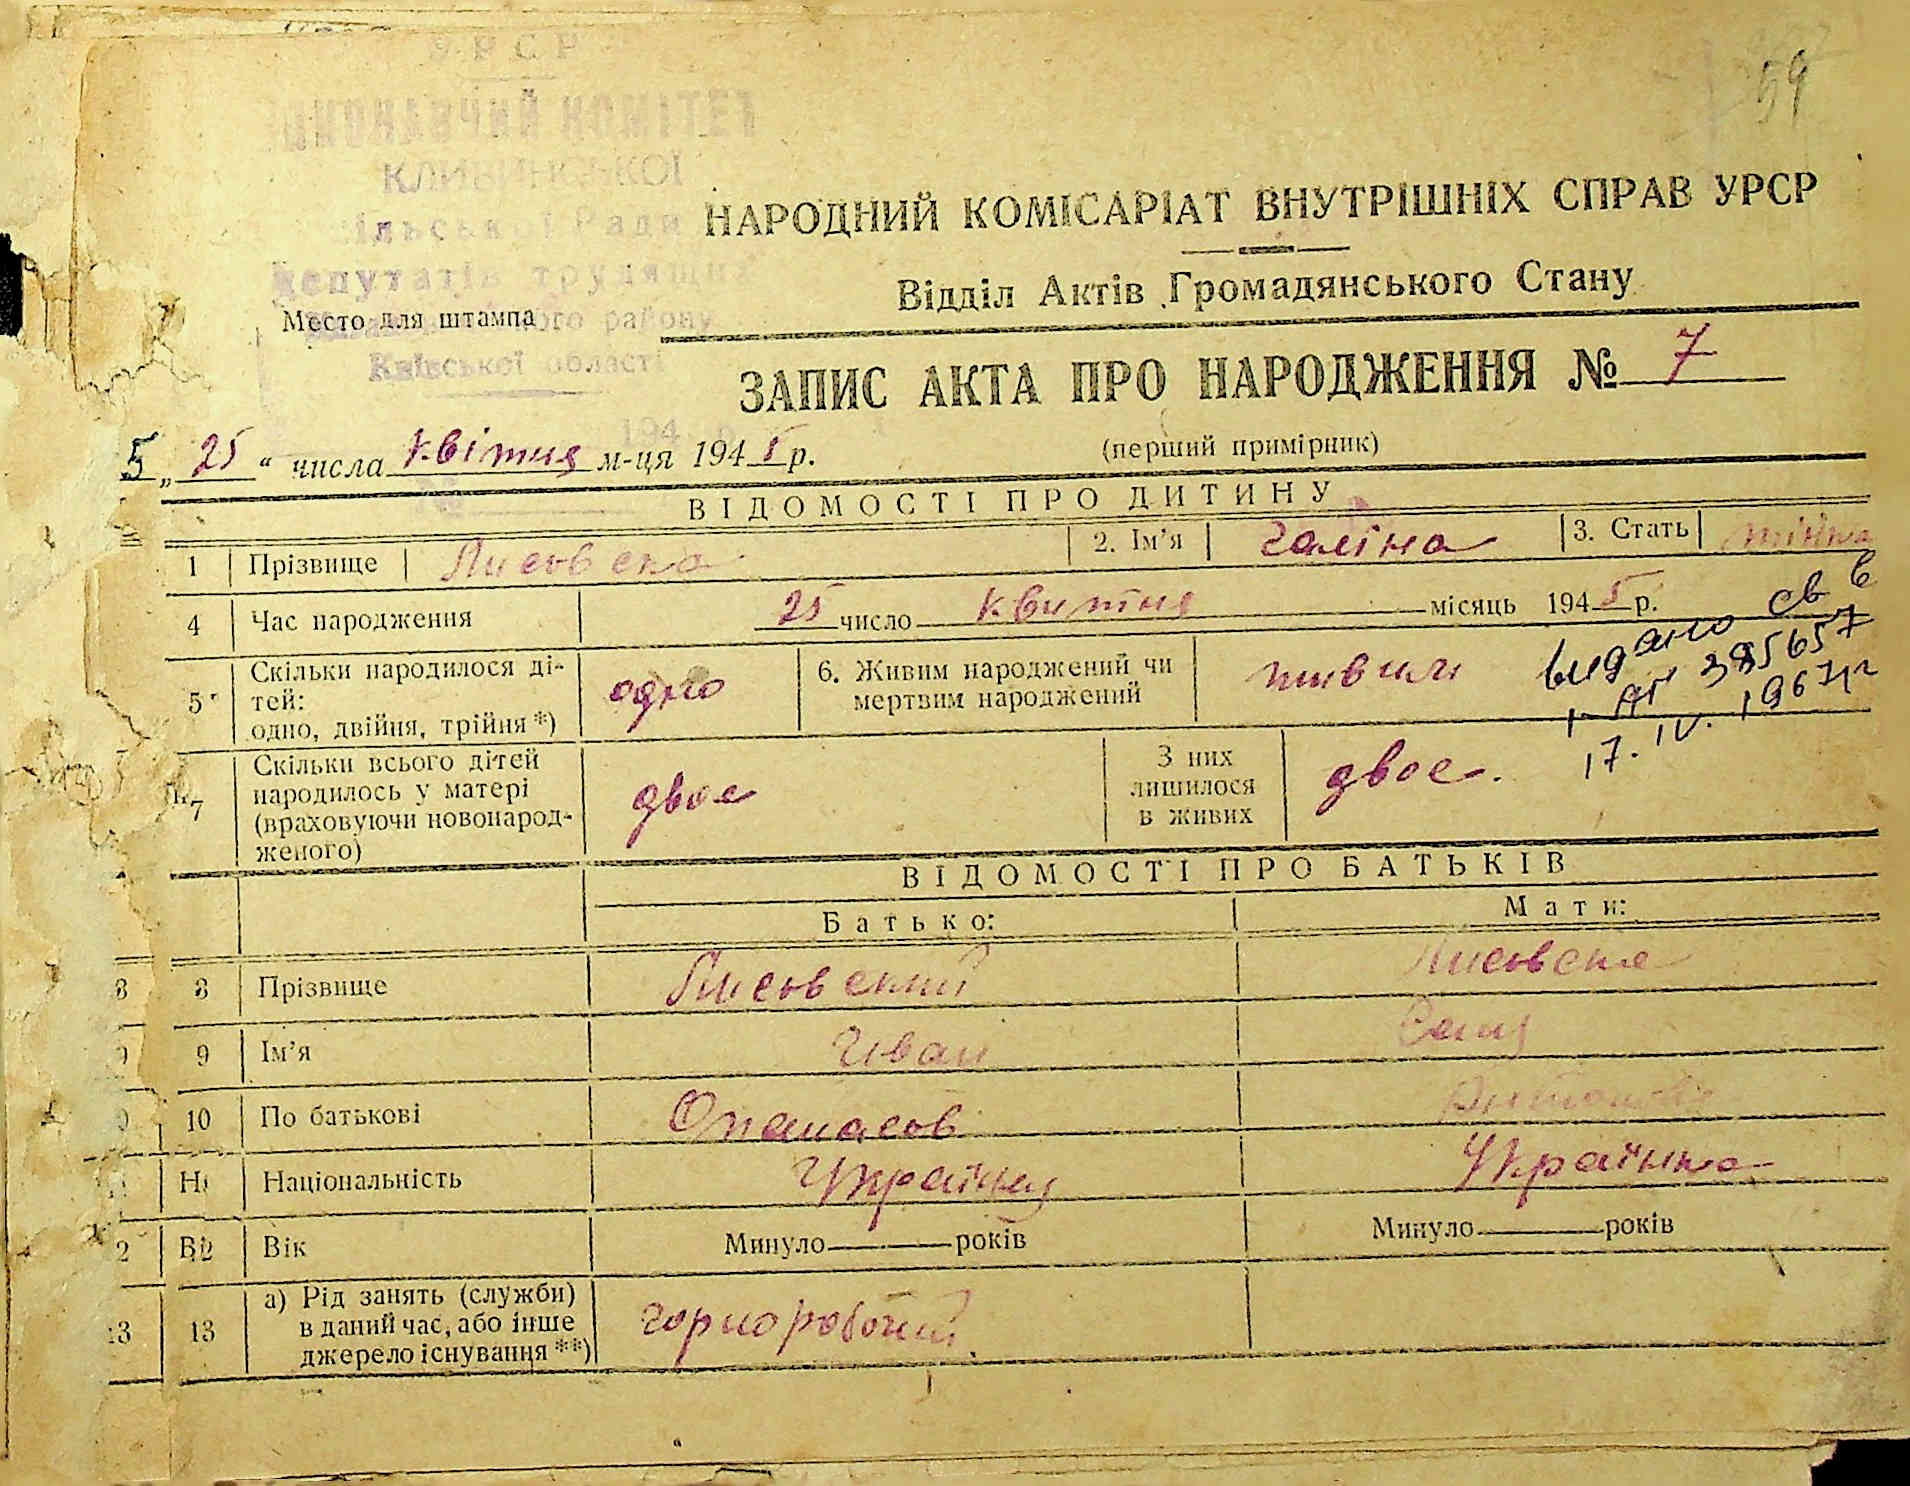 УРСР
59
ВИКОНАВЧИЙ КОМІТЕТ
сільської Ради
депутатів трудящих
району
Київської області
НАРОДНИЙ КОМІСАРІАТ ВНУТРІШНІХ СПРАВ УРСР
Відділ Актів Громадянського Стану
Место для штампа
ЗАПИС АКТА ПРО НАРОДЖЕННЯ № 7
(перший примірник)
5 „25“ числа квітня м-ця 1945 р.
ВІДОМОСТІ ПРО ДИТИНУ
1 Прізвище Лисовска 2. Ім’я Галіна 3. Стать жінка
4 Час народження 25 число квитня місяць 1945 р.
5 Скільки народилося дітей: одно, двійня, трійня *) одно 6. Живим народжений чи мертвим народжений живим
видано св в
І 395657
17. IV. 1967
7 Скільки всього дітей народилось у матері (враховуючи новонародженого) двое З них лишилося в живих двое.
ВІДОМОСТІ ПРО БАТЬКІВ
Батько: Мати:
8 8 Прізвище Лисовский Лисовска
9 9 Ім’я Иван
10 По батькові Опанасов
Національність Українец Українка
2 Вік Минуло років Минуло років
13 13 а) Рід занять (служби) в даний час, або інше джерело існування **) горнорабочий